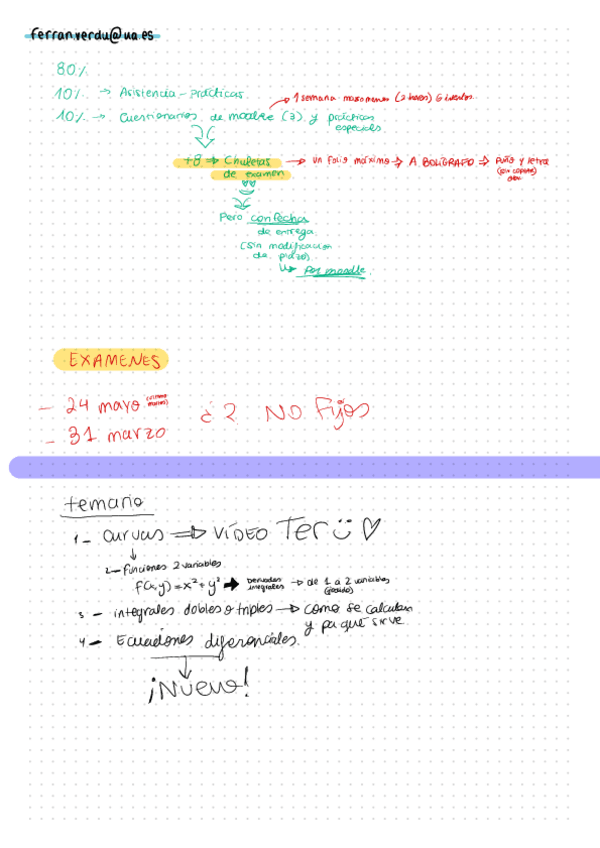 ferran.verdu@ua.es
80%
10% → Asistencia - prácticas
1 semana más o menos (2 horas) 6
10% → Cuestionarios de moodle (3) y prácticas
especiales
+8 ⇒ Chuletas → un folio máximo → A BOLÍGRAFO ⇒ Puño y letra
de examen
Pero con fecha
de entrega
(sin modificación
de plazo)
↳ Por moodle.
EXAMENES
- 24 mayo ¿? NO Fijos
- 31 marzo
temario
1 - curvas ⇒ VÍDEO Ter ♡
2 - Funciones 2 variables
f(x,y) = x² + y² → Derivadas integrales → de 1 a 2 variables
3 - integrales dobles o triples → como se calculan
y pa qué sirve
4 - Ecuaciones diferenciales.
¡Nuevo!